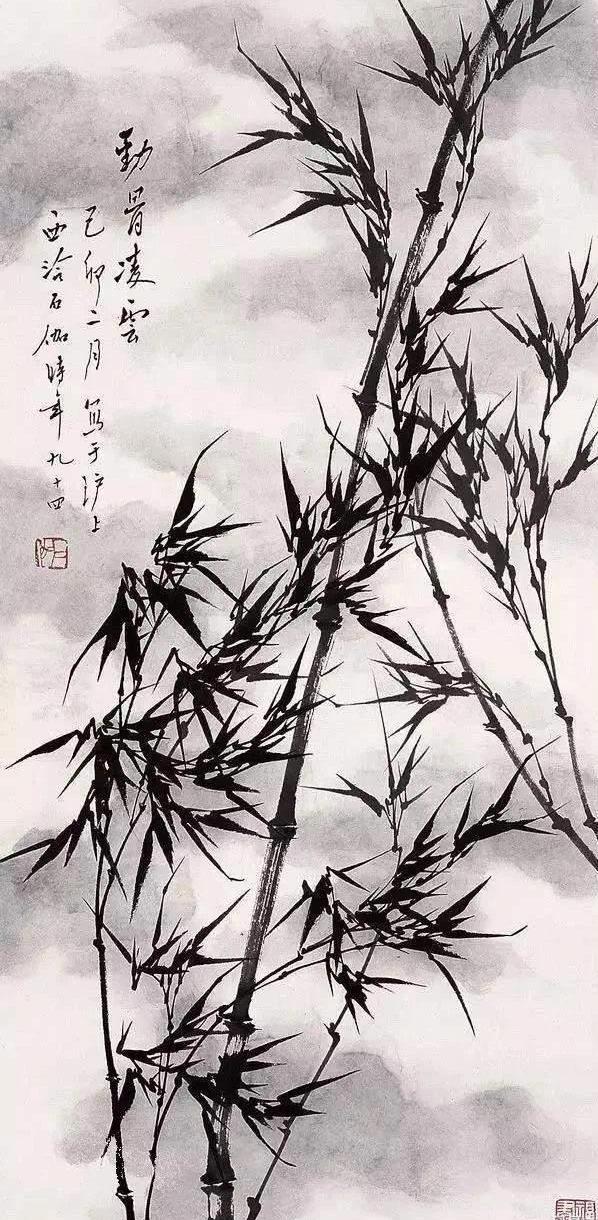 勁骨凌雲
己卯二月寫于沪上
西泠石伽時年九十四